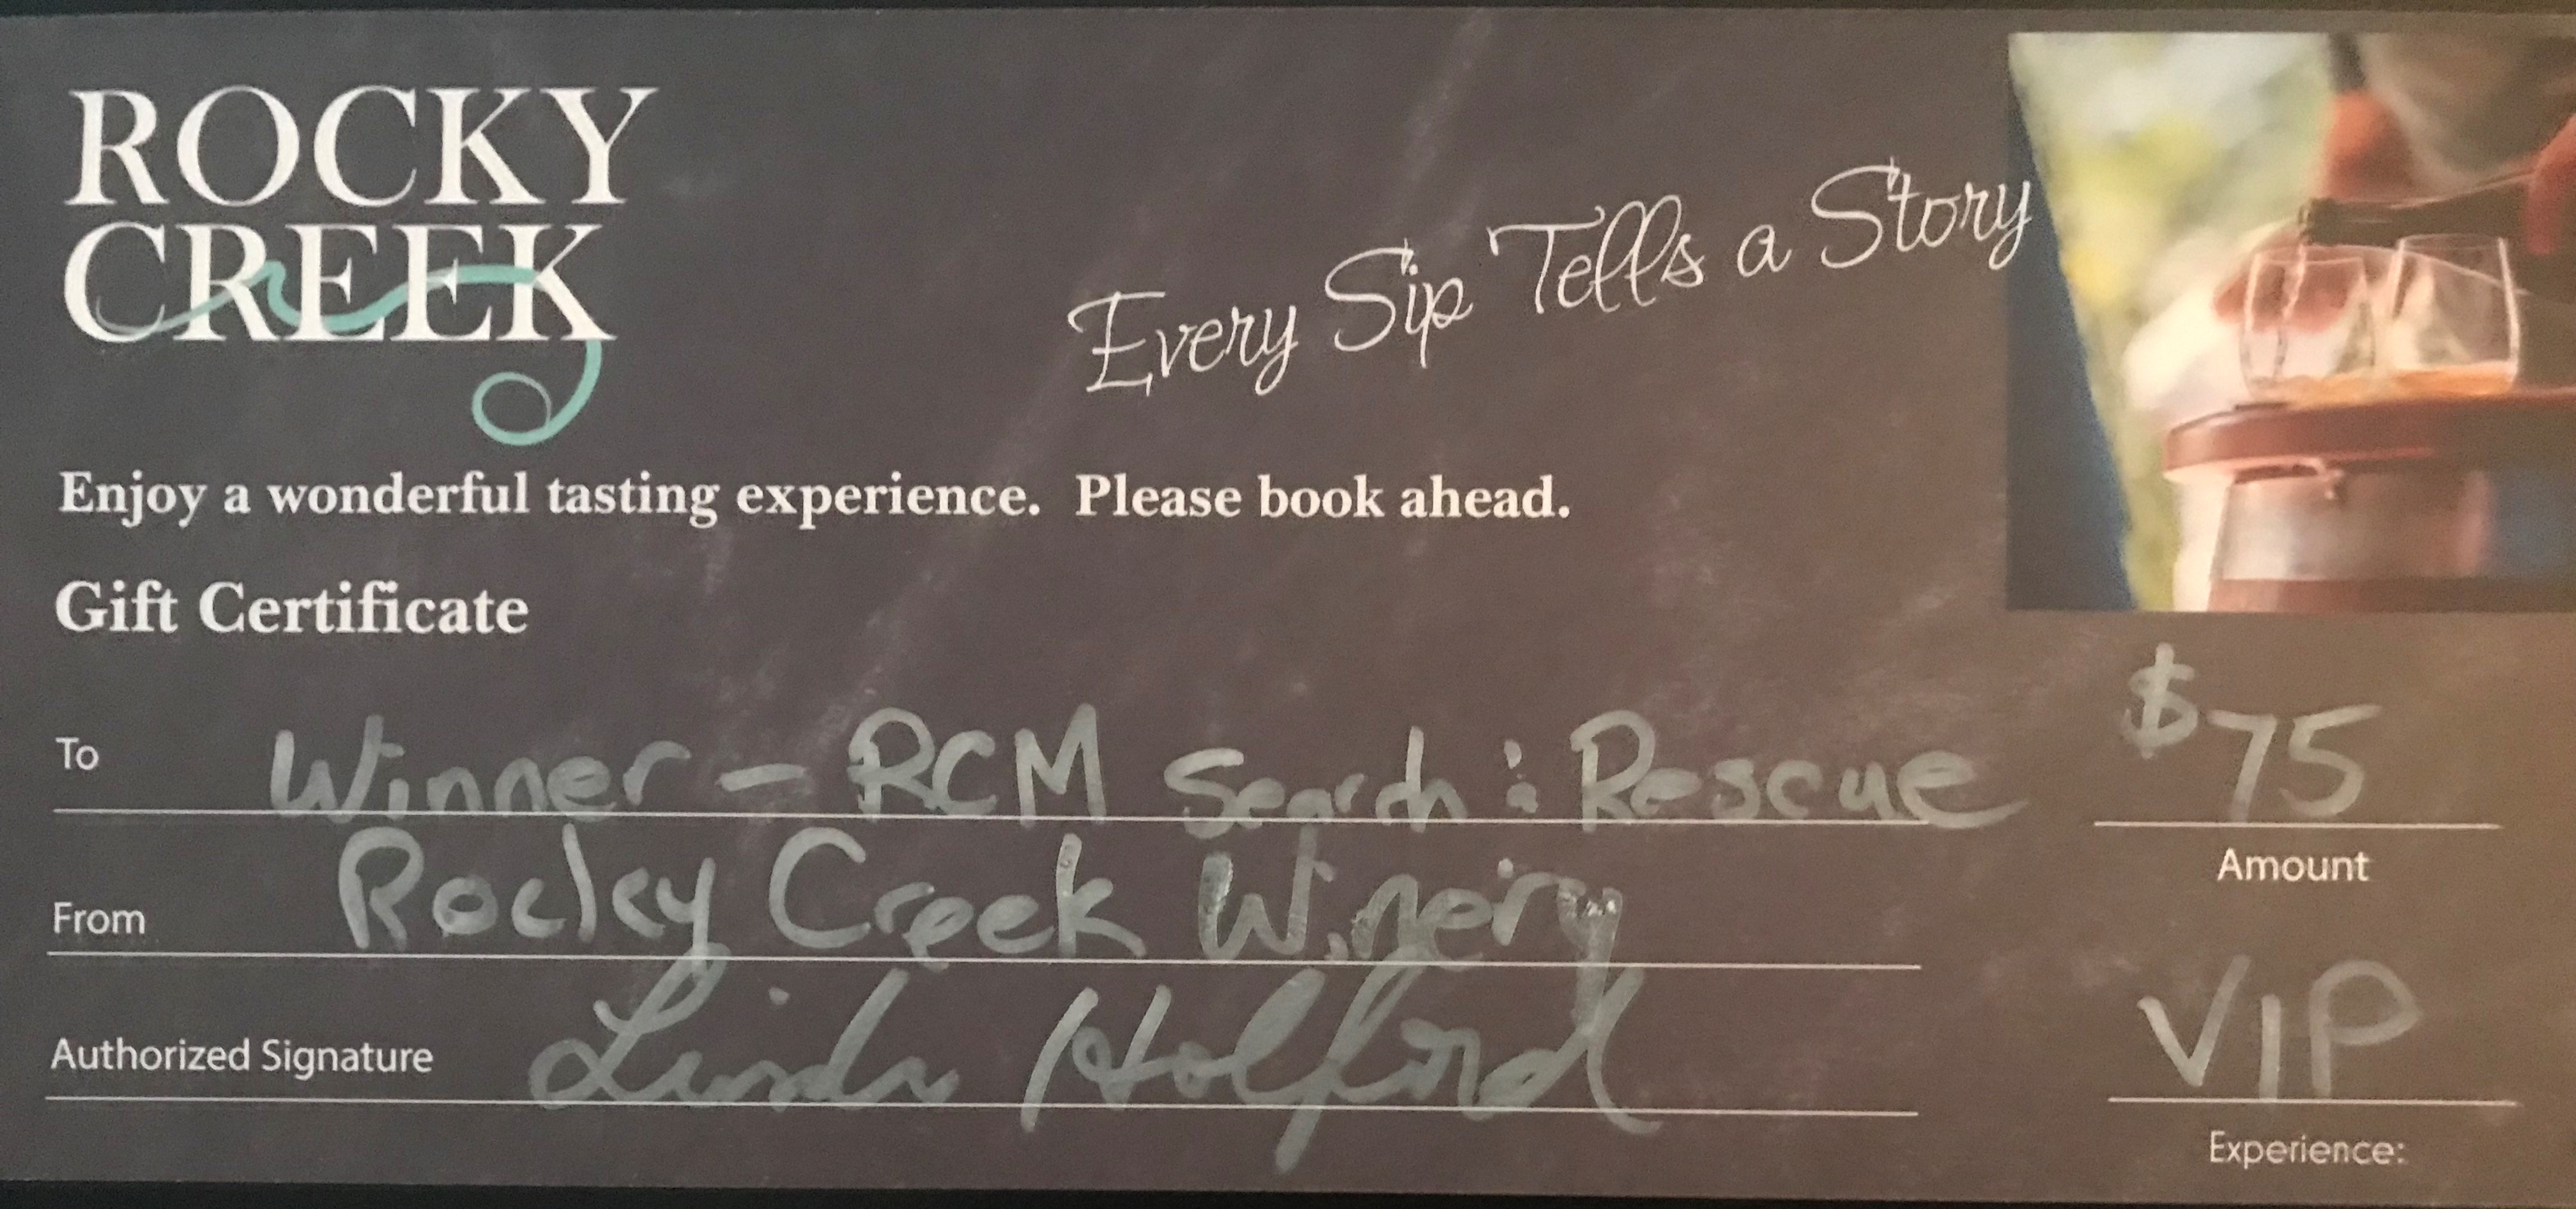 ROCKY
CREEK
Every Sip Tells a Story
Enjoy a wonderful tasting experience. Please book ahead.
Gift Certificate
To Winner - RCM Search & Rescue
$75
Amount
From Rocky Creek Winery
Authorized Signature Linda Holford
VIP
Experience: